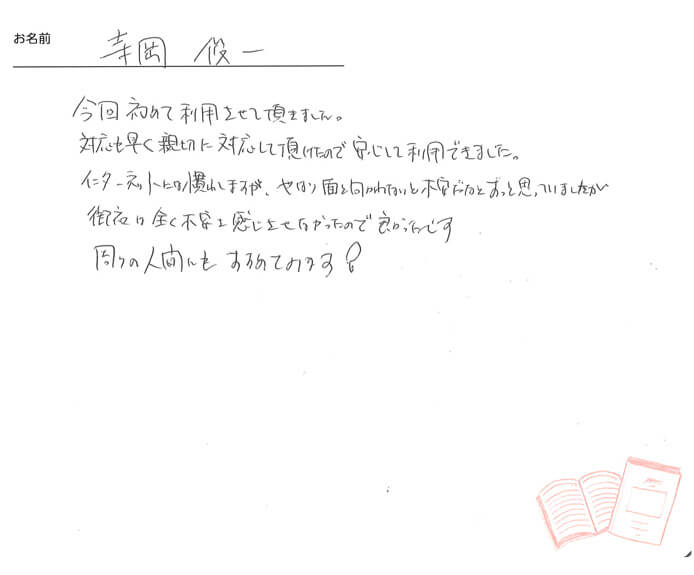 お名前 寺岡 俊一
今回初めて利用させて頂きました。
対応も早く親切に対応して頂けたので安心して利用できました。
インターネットには慣れてますが、やはり面と向かわないと不安だなとずっと思っていましたが
御社は全く不安を感じさせなかったので良かったです
周りの人間にもすすめておきます!